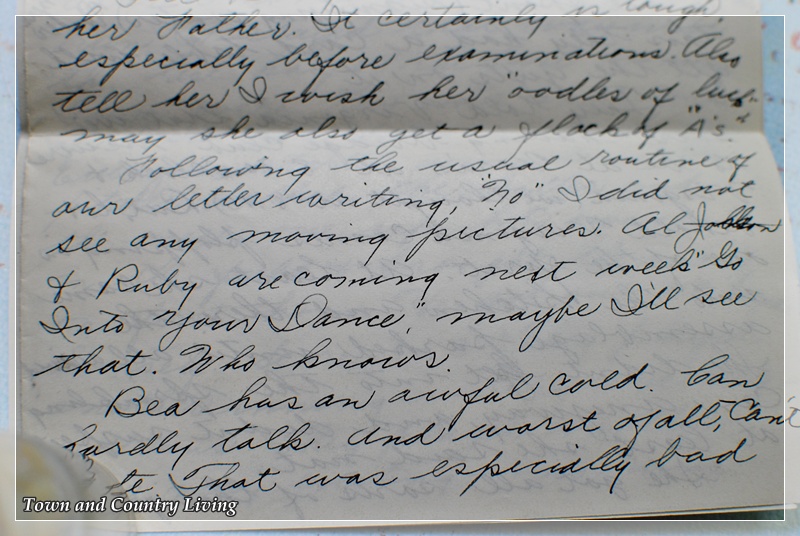 her Father. It certainly is tough.
especially before examinations. Also
tell her I wish her "oodles of luck-
may she also get a flock of "A's."
Following the usual routine of
our letter writing, "No" I did not
see any moving pictures. Al Jolson
& Ruby are coming next week "Go
Into Your Dance", maybe I'll see
that. Who knows.
Bea has an awful cold. Can
hardly talk. And worst of all, Can't
That was especially bad
Town and Country Living